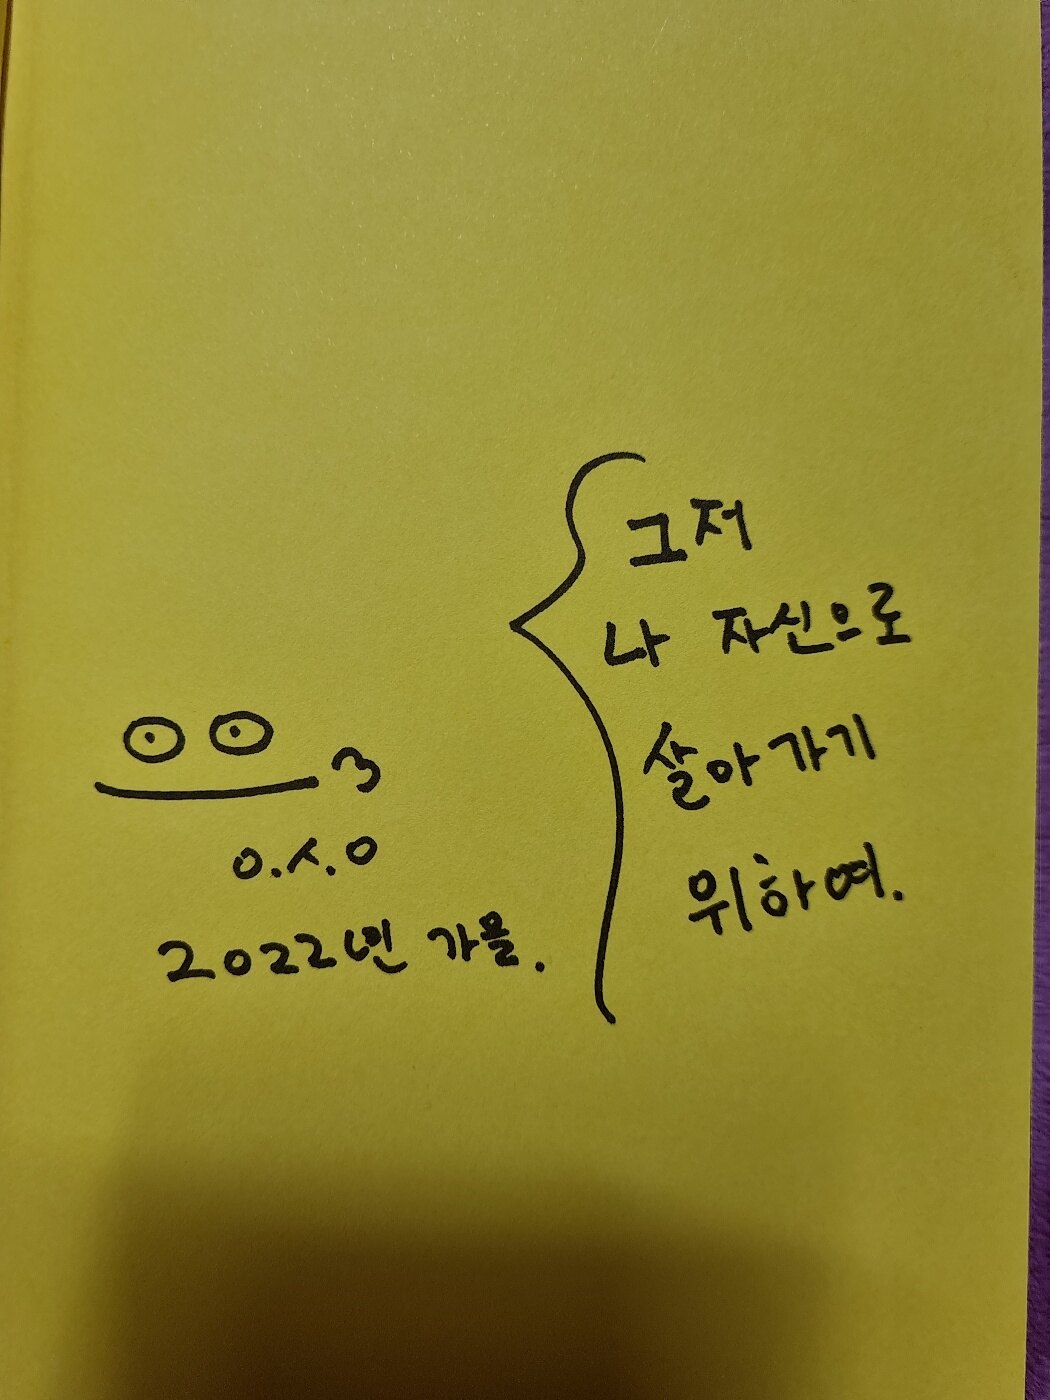 그저
나 자신으로
살아가기
위하여.
ㅇ.ㅅ.ㅇ
2022년 가을.